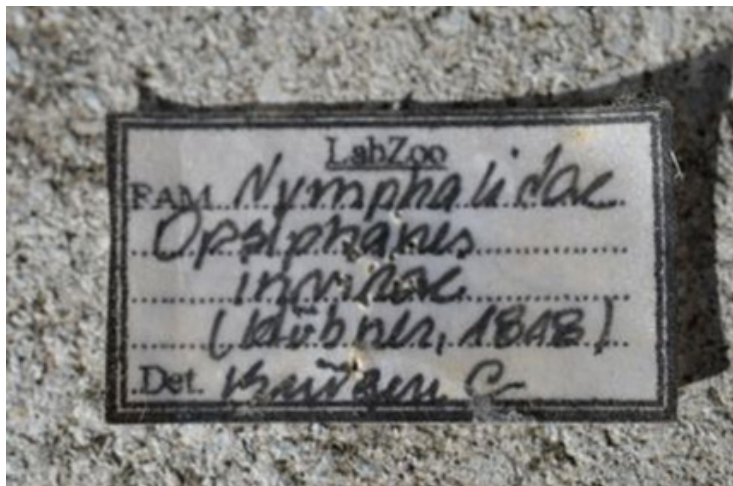 LabZoo
FAM. Nymphalidae
Opsiphanes
invirae
(Hübner, 1818)
Det. C